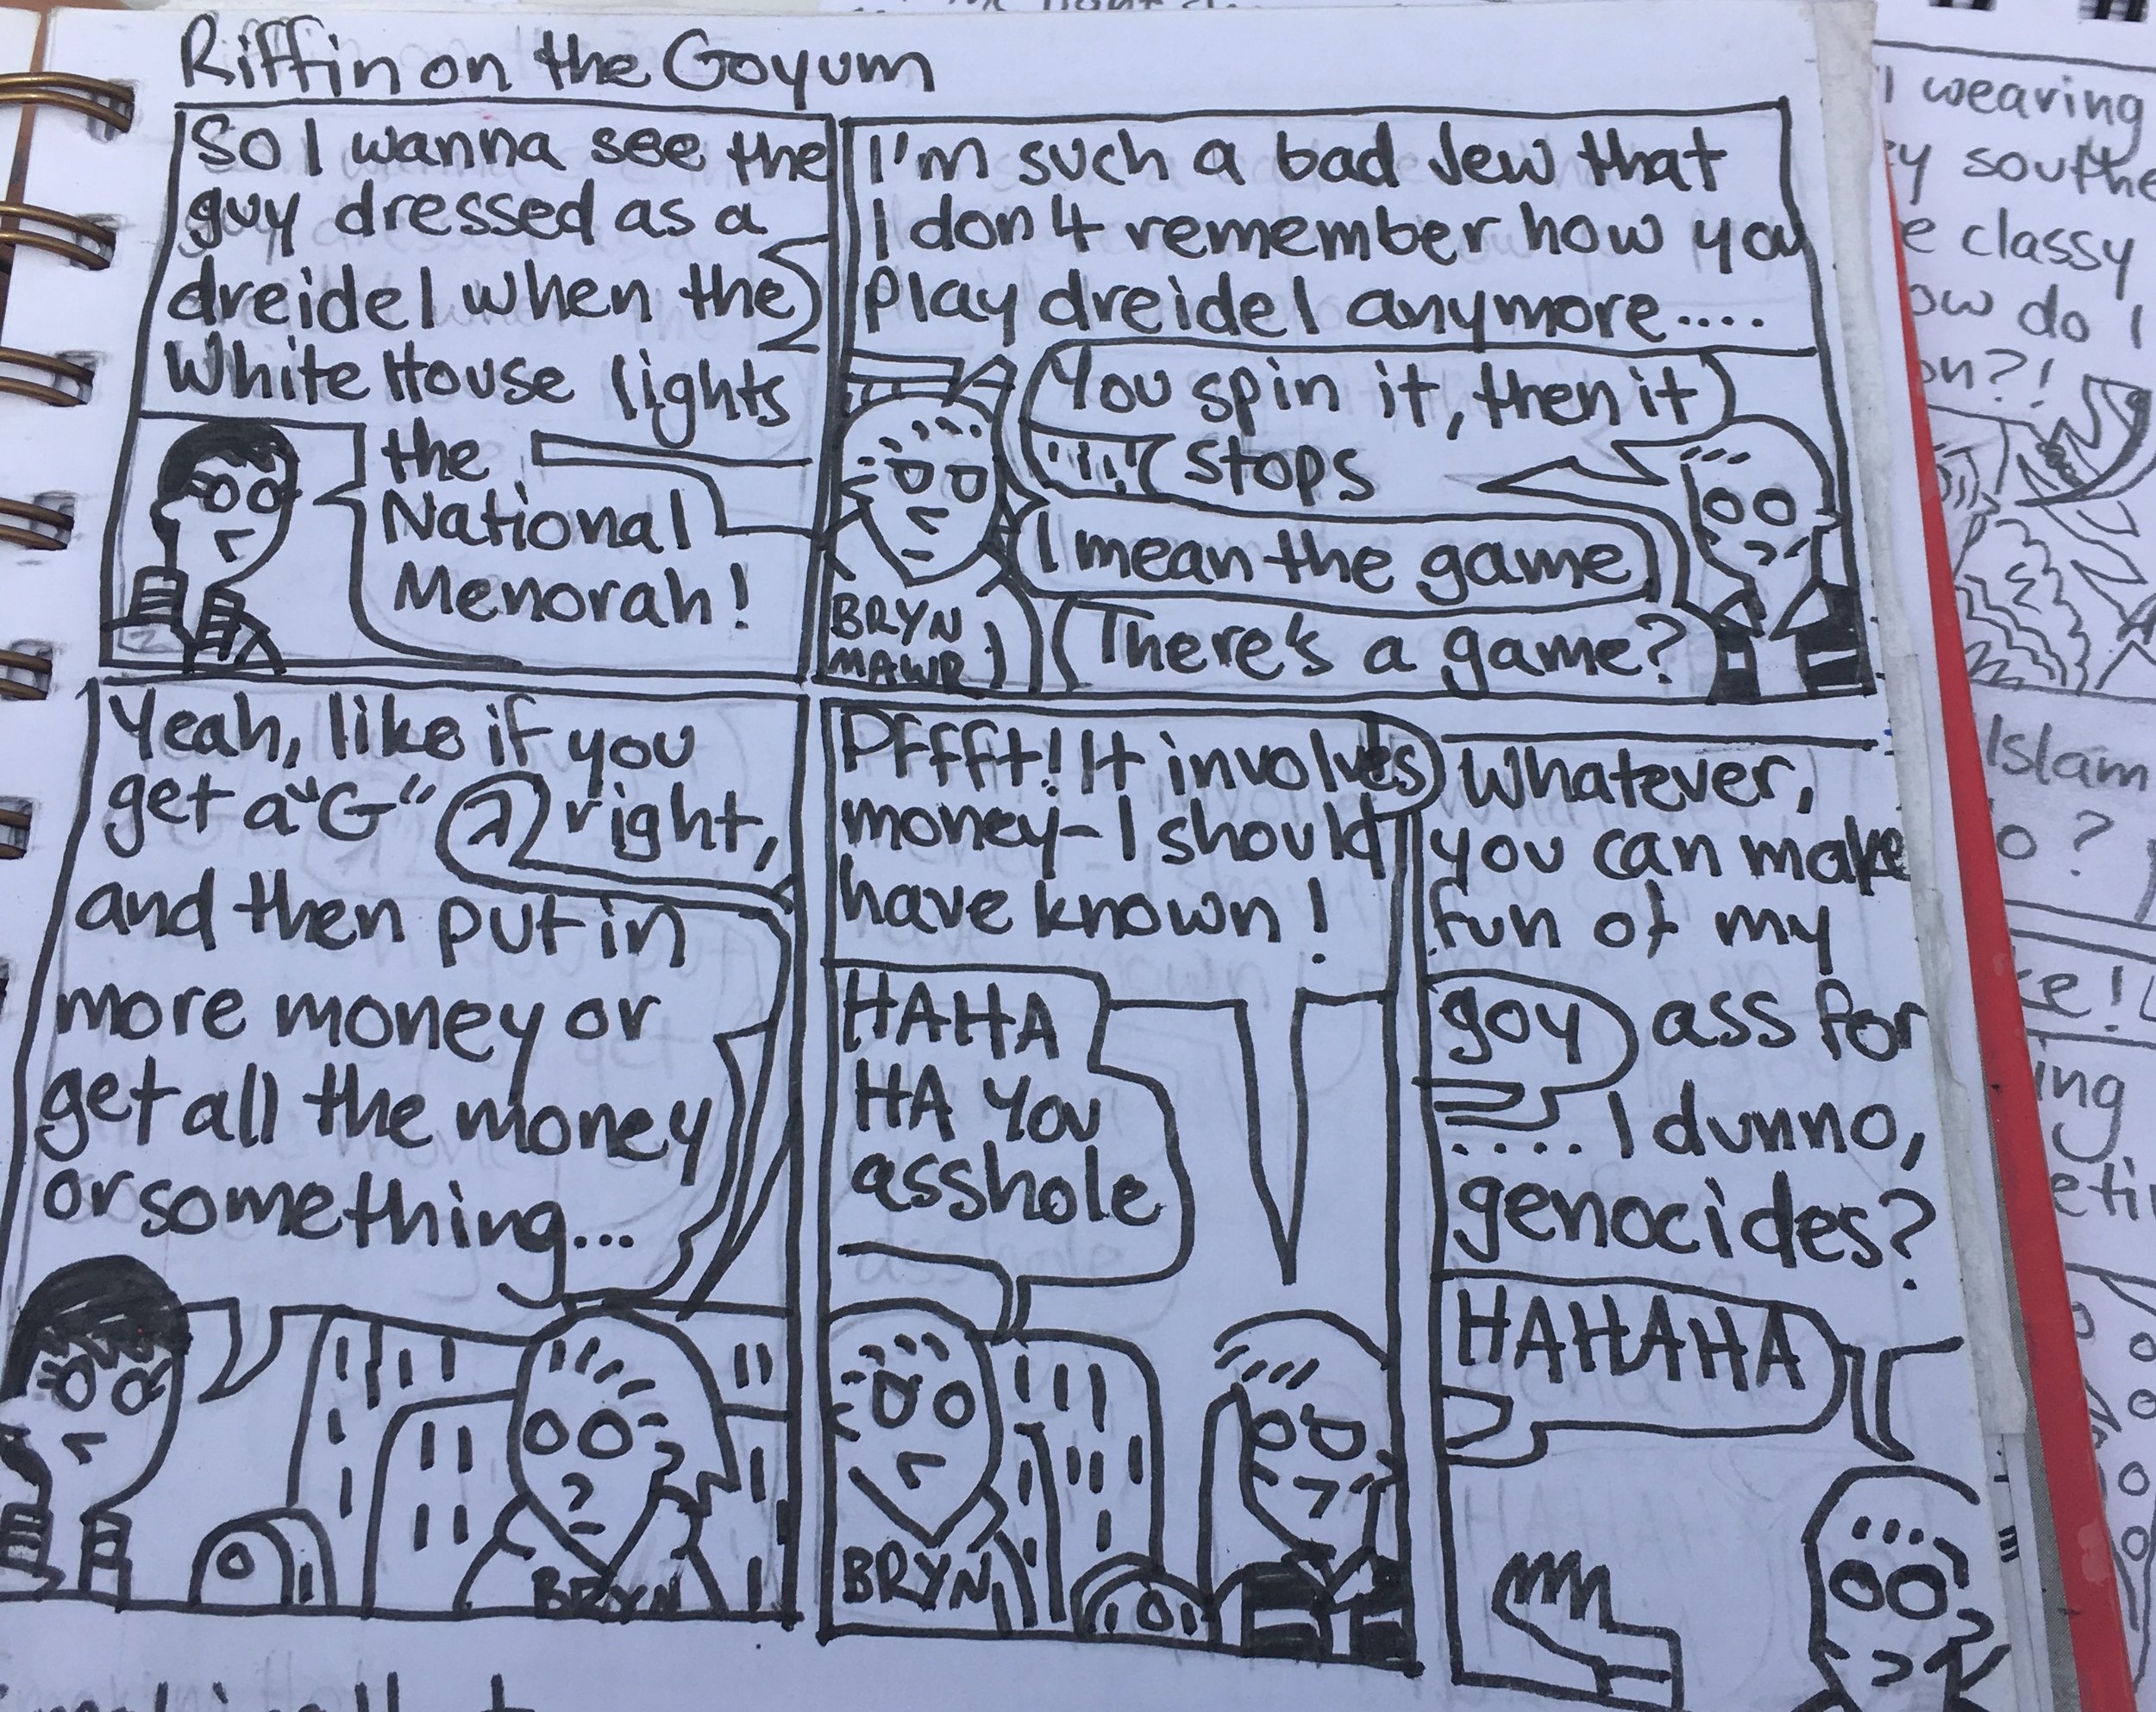 Riffin on the Goyum
So I wanna see the
guy dressed as a
dreidel when the
White House lights
the
National
Menorah!
I'm such a bad Jew that
I don't remember how you
play dreidel anymore....
You spin it, then it
stops
I mean the game
There's a game?
BRYN
MAWR
Yeah, like if you
get a "G"
right,
and then put in
more money or
get all the money
or something...
BRYN
Pffft! It involves
money- I should
have known!
HAHA
HA You
asshole
BRYN
Whatever,
you can make
fun of my
goy ass for
.... I dunno,
genocides?
HAHAHA
I wearing
classy
ow do I
on?!
Islam
o?
ce!
ing